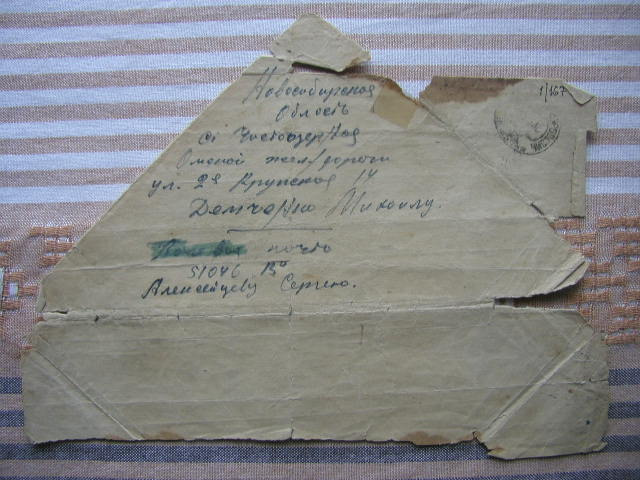 1/167
Новосибирская
Область
ст Чистоозерная
Омской жел/дороги
ул. 2я Крупская 14
Демченко Михаилу.
Полевая почта
51046 В"
Алексейцеву Сергею.